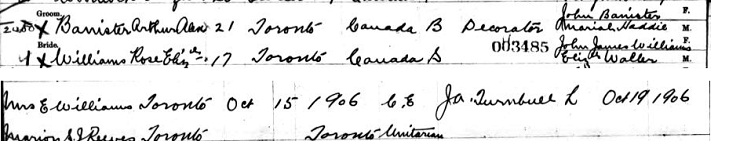 Groom John Banister F.
X Banister Arthur Alex 21 Toronto Canada B Decorator Mariah Haddie M.
Bride 003485 John James Williams F.
X Williams Rose Eliz 17 Toronto Canada S Eliz Waller M.
Mrs E Williams Toronto Oct 15 1906 C.E Ja. Turnbull L Oct 19 1906
Marion S.J Reeves Toronto Toronto Unitarian